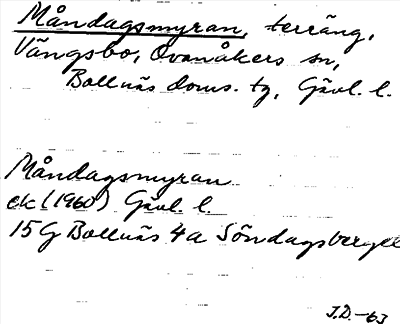 Måndagsmyran, terräng,
Vängsbo, Ovanåkers sn,
Bollnäs doms. tg, Gävl. l.
Måndagsmyran
ek (1960) Gävl. l.
15G Bollnäs 4a Söndagsberget
J.D.-63